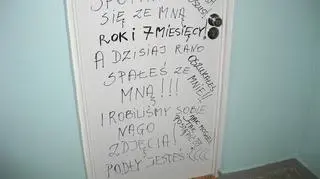 SIĘ ZE MNĄ
ROK I 7 MIESIĘCY
A DZISIAJ RANO
SPAŁEŚ ZE
MNĄ!!!
I ROBILIŚMY SOBIE
NAGO
ZDJĘCIA!
PODŁY JESTEŚ
OSZUKAŁEŚ
MNIE!!